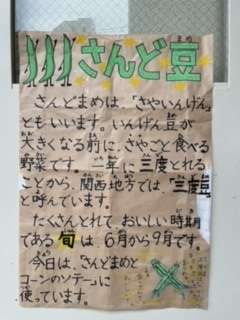 さんど豆
まめ
さんどまめは、「さやいんげん」
ともいいます。いんげん豆が
大きくなる前に、さやごと食べる
野菜です。一年に三度とれる
ことから、関西地方では「三度豆」
と呼んでいます。
たくさんとれて おいしい時期
である 旬 は、6月から9月です。
今日は、「さんどまめと
コーンのソテー」に
使っています。